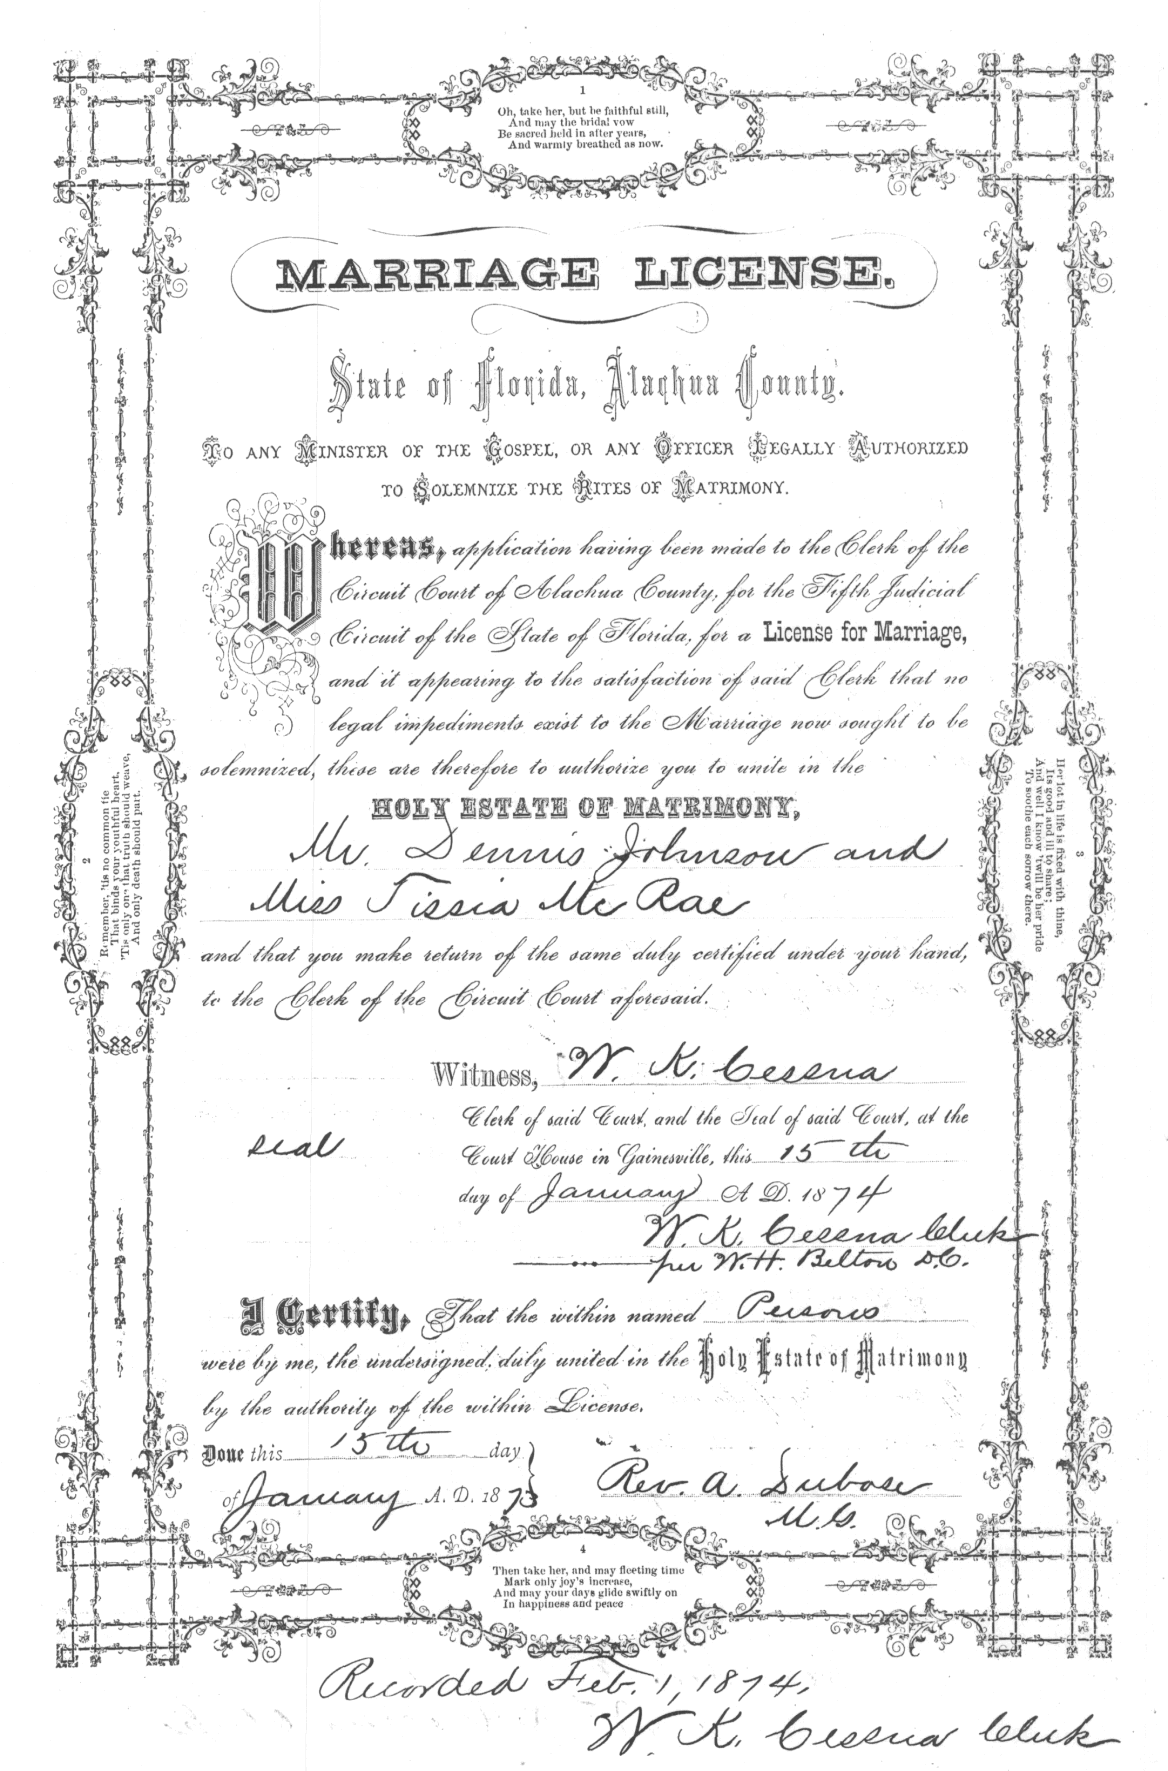 1
Oh, take her, but be faithful still,
And may the bridal vow
Be sacred held in after years,
And warmly breathed as now.
MARRIAGE LICENSE.
State of Florida, Alachua County.
TO ANY MINISTER OF THE GOSPEL, OR ANY OFFICER LEGALLY AUTHORIZED
TO SOLEMNIZE THE RITES OF MATRIMONY.
Whereas, application having been made to the Clerk of the
Circuit Court of Alachua County, for the Fifth Judicial
Circuit of the State of Florida, for a License for Marriage,
and it appearing to the satisfaction of said Clerk that no
legal impediments exist to the Marriage now sought to be
solemnized, these are therefore to authorize you to unite in the
HOLY ESTATE OF MATRIMONY,
Mr. Dennis Johnson and
Miss Tissia Mc Rae
and that you make return of the same duly certified under your hand,
to the Clerk of the Circuit Court aforesaid.
Witness, W. K. Cessna
Clerk of said Court, and the Seal of said Court, at the
seal
Court House in Gainesville, this 15th
day of January A. D. 1874
W. K. Cessna Clerk
per W. H. Belton D.C.
I Certify, That the within named Persons
were by me, the undersigned, duly united in the Holy Estate of Matrimony
by the authority of the within License.
Done this 15th day
of January A. D. 1873
Rev. A. Dubose
M.G.
2
Remember, 'tis no common tie
That binds your youthful heart,
'Tis only one that truth should weave,
And only death should part.
3
Her lot in life is fixed with thine,
Its good and ill to share;
And well I know 'twill be her pride
To soothe each sorrow there.
4
Then take her, and may fleeting time
Mark only joy's increase,
And may your days glide swiftly on
In happiness and peace
Recorded Feb. 1, 1874,
W. K. Cessna Clerk